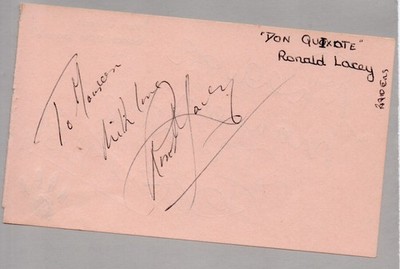 "DON QUIXOTE"
Ronald Lacey
To Maureen
with love
Ronald Lacey